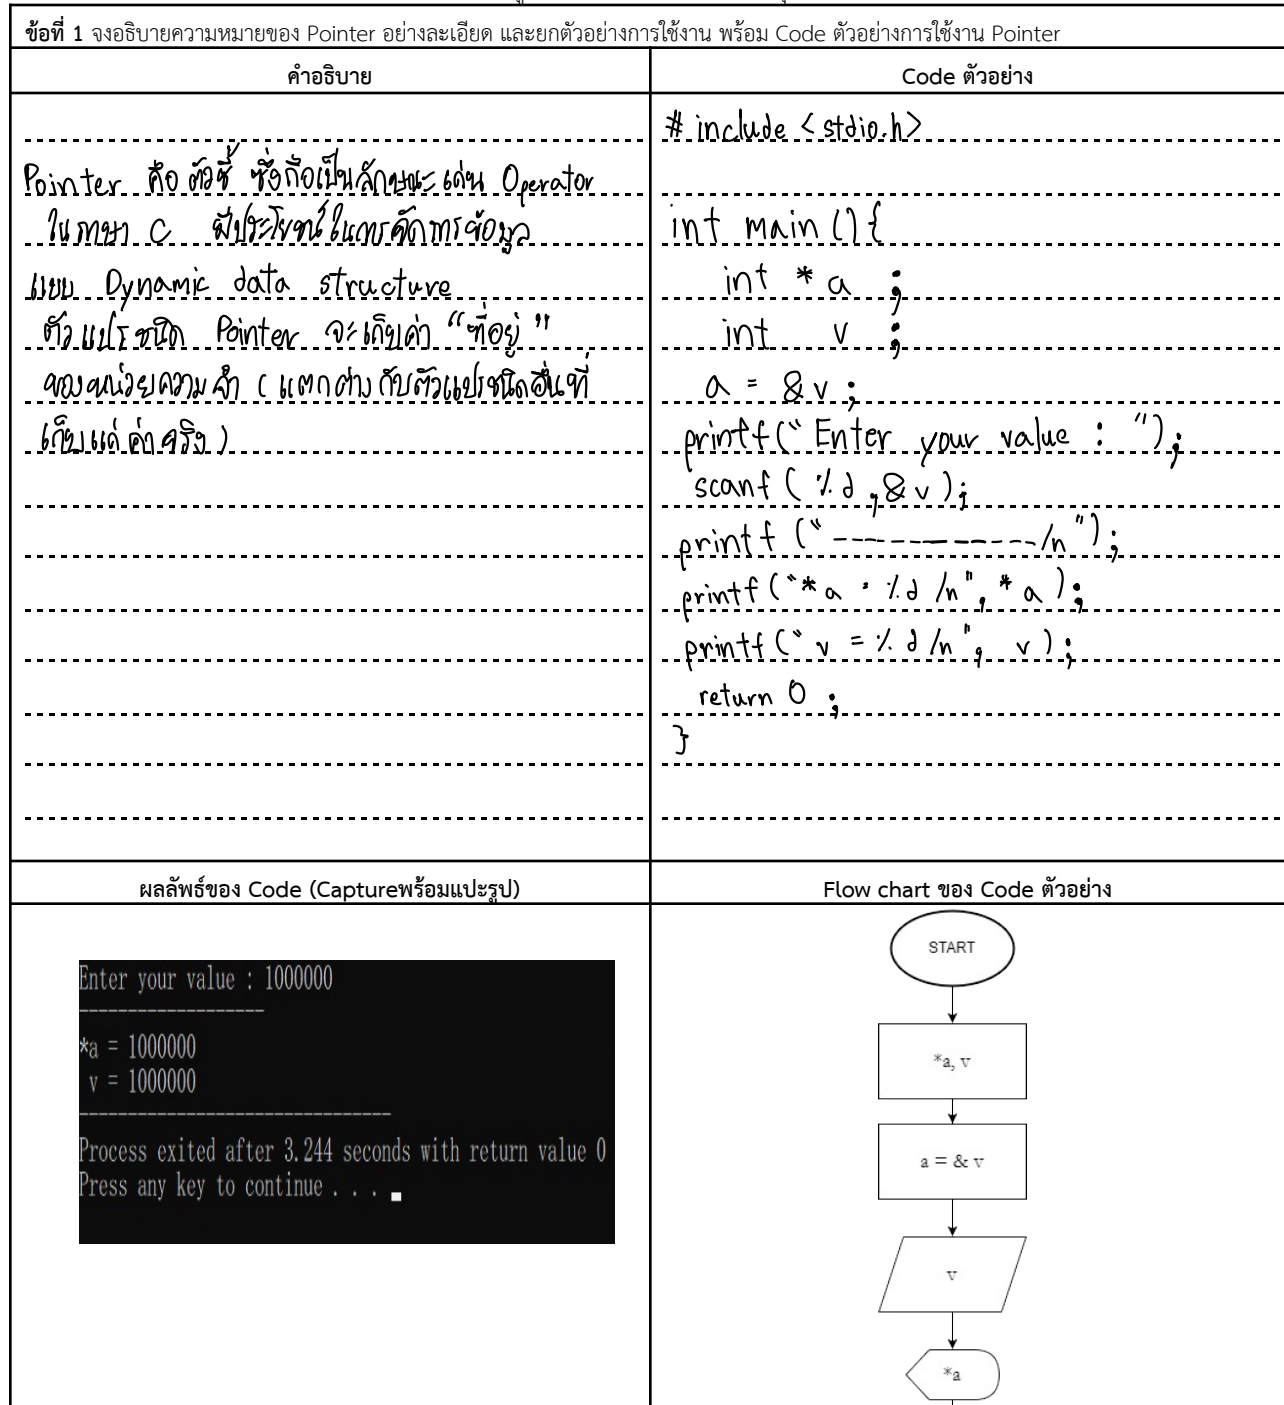 ข้อที่ 1 จงอธิบายความหมายของ Pointer อย่างละเอียด และยกตัวอย่างการใช้งาน พร้อม Code ตัวอย่างการใช้งาน Pointer
คำอธิบาย
Pointer คือ ตัวชี้ ซึ่งถือเป็นลักษณะเด่น Operator
ในภาษา C มีประโยชน์ในการจัดการข้อมูล
แบบ Dynamic data structure
ตัวแปรชนิด Pointer จะเก็บค่า "ที่อยู่"
ของหน่วยความจำ (แตกต่างกับตัวแปรชนิดอื่นที่
เก็บแค่ค่าจริง)
Code ตัวอย่าง
# include <stdio.h>
int main () {
int * a ;
int v ;
a = & v ;
printf("Enter your value : ");
scanf ( %d , & v );
printf ("------------/n");
printf ("*a = %d /n", * a );
printf (" v = %d /n", v );
return 0 ;
}
ผลลัพธ์ของ Code (Captureพร้อมแปะรูป)
Enter your value : 1000000
-------------------
*a = 1000000
v = 1000000
--------------------------------
Process exited after 3.244 seconds with return value 0
Press any key to continue . . .
Flow chart ของ Code ตัวอย่าง
START
*a, v
a = & v
v
*a